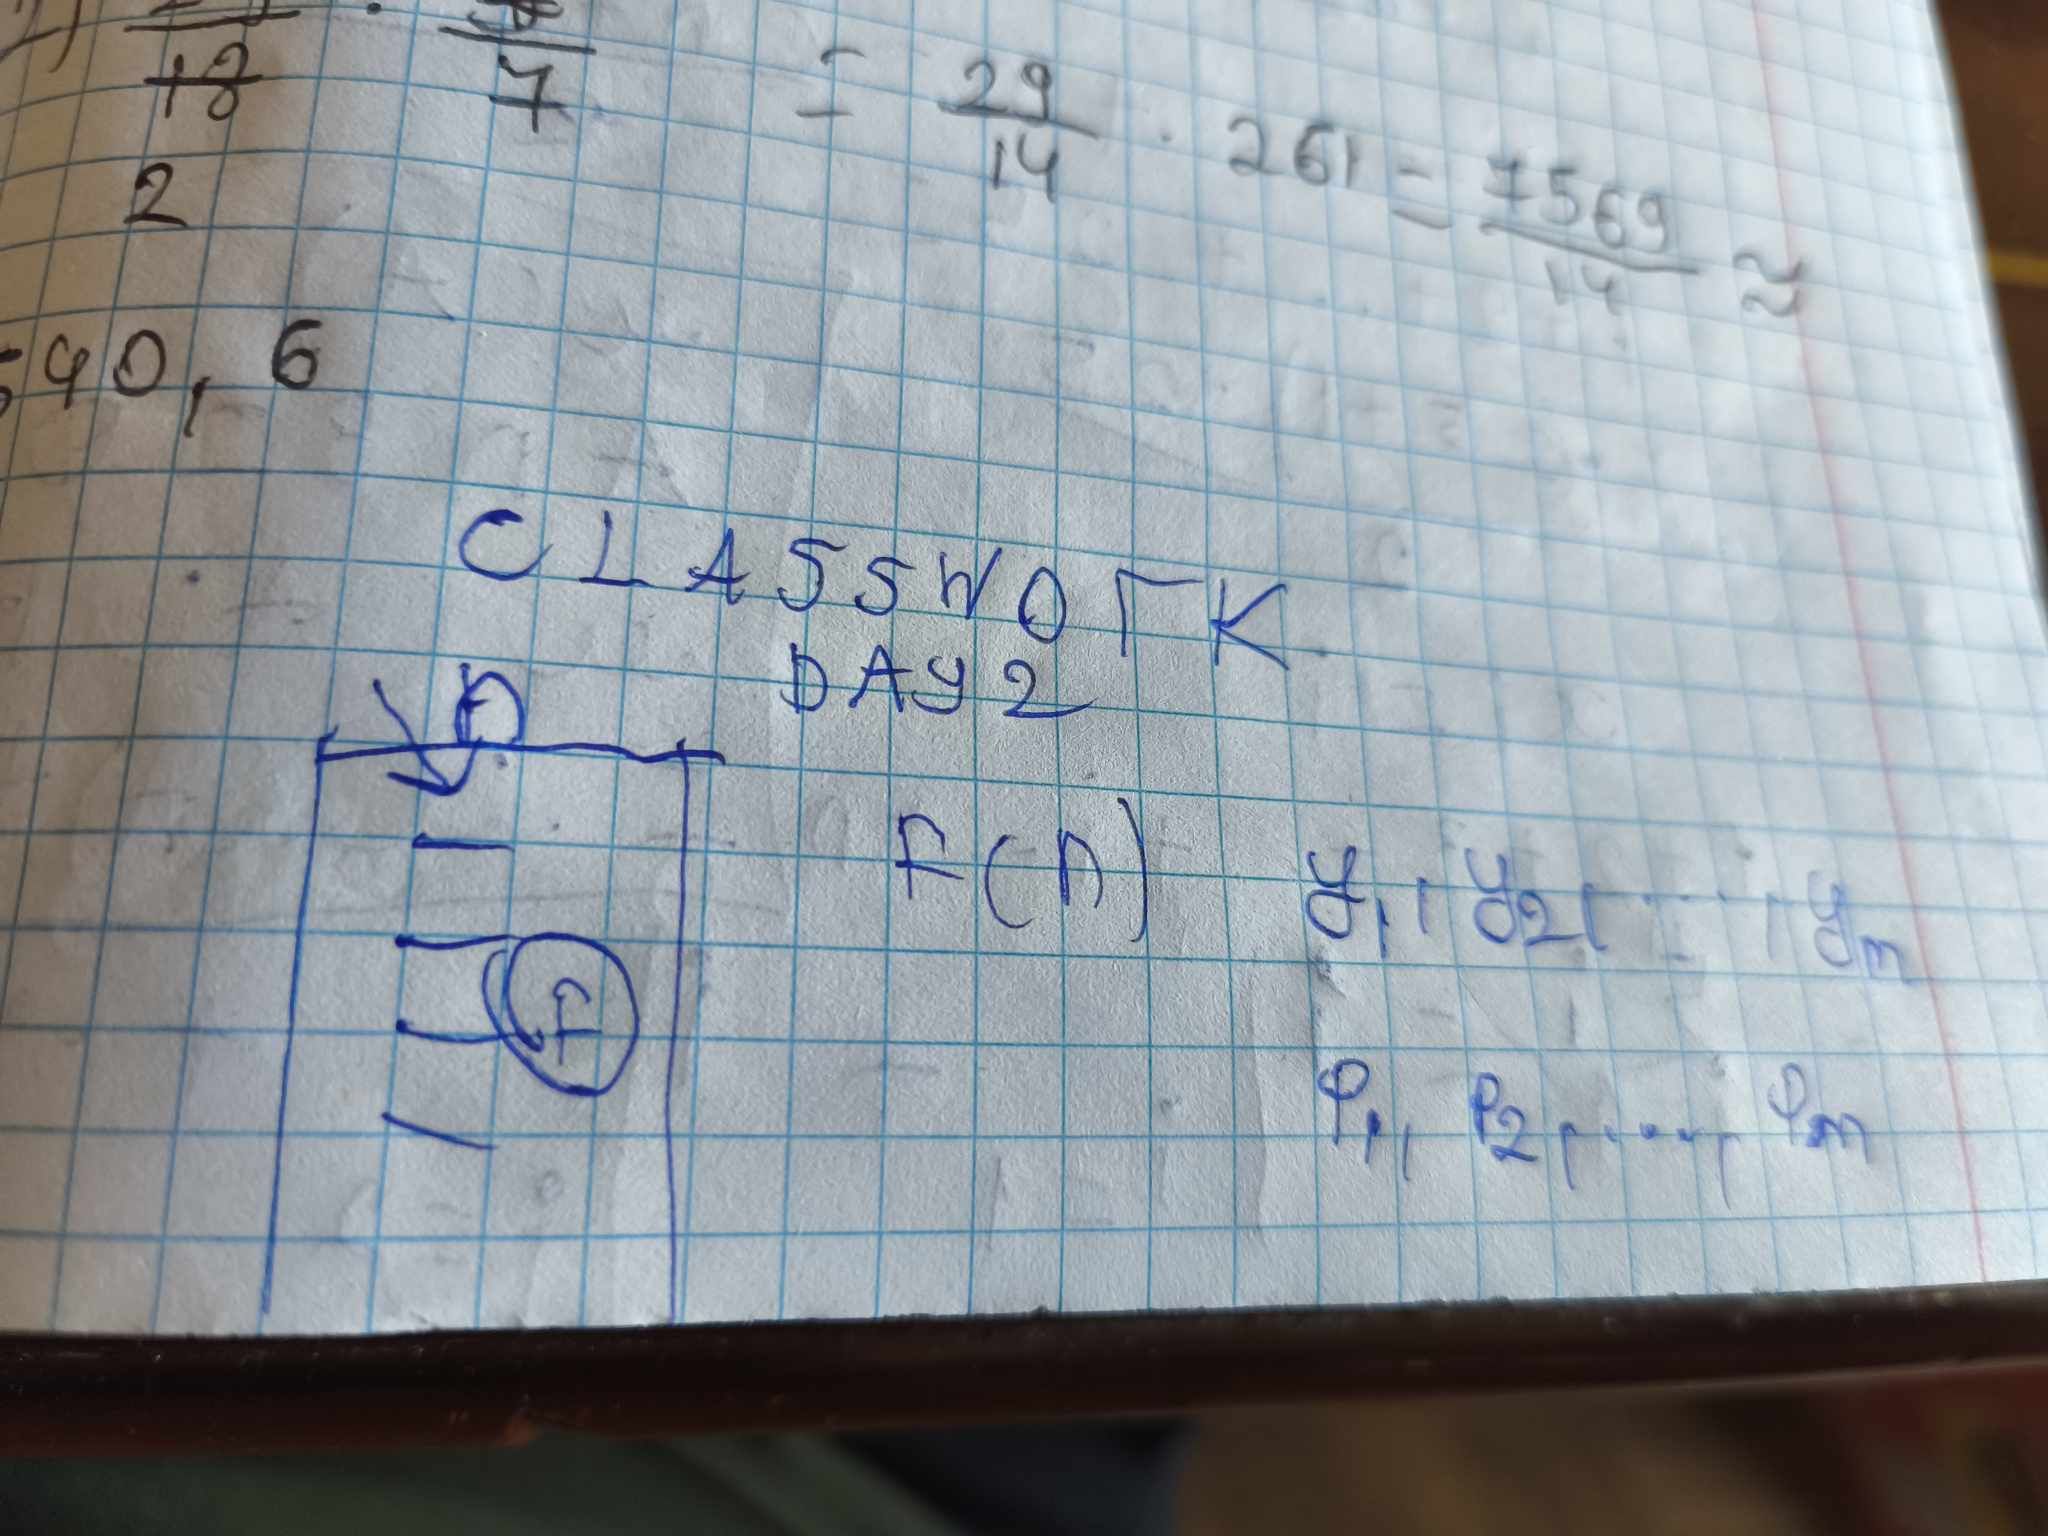 18 7 = 29/14 · 261 = 7569/14 ≈
2
540,6
CLASSWORK
DAY 2
n
F(n) y1, y2, ..., ym
F
P1, P2, ..., Pm